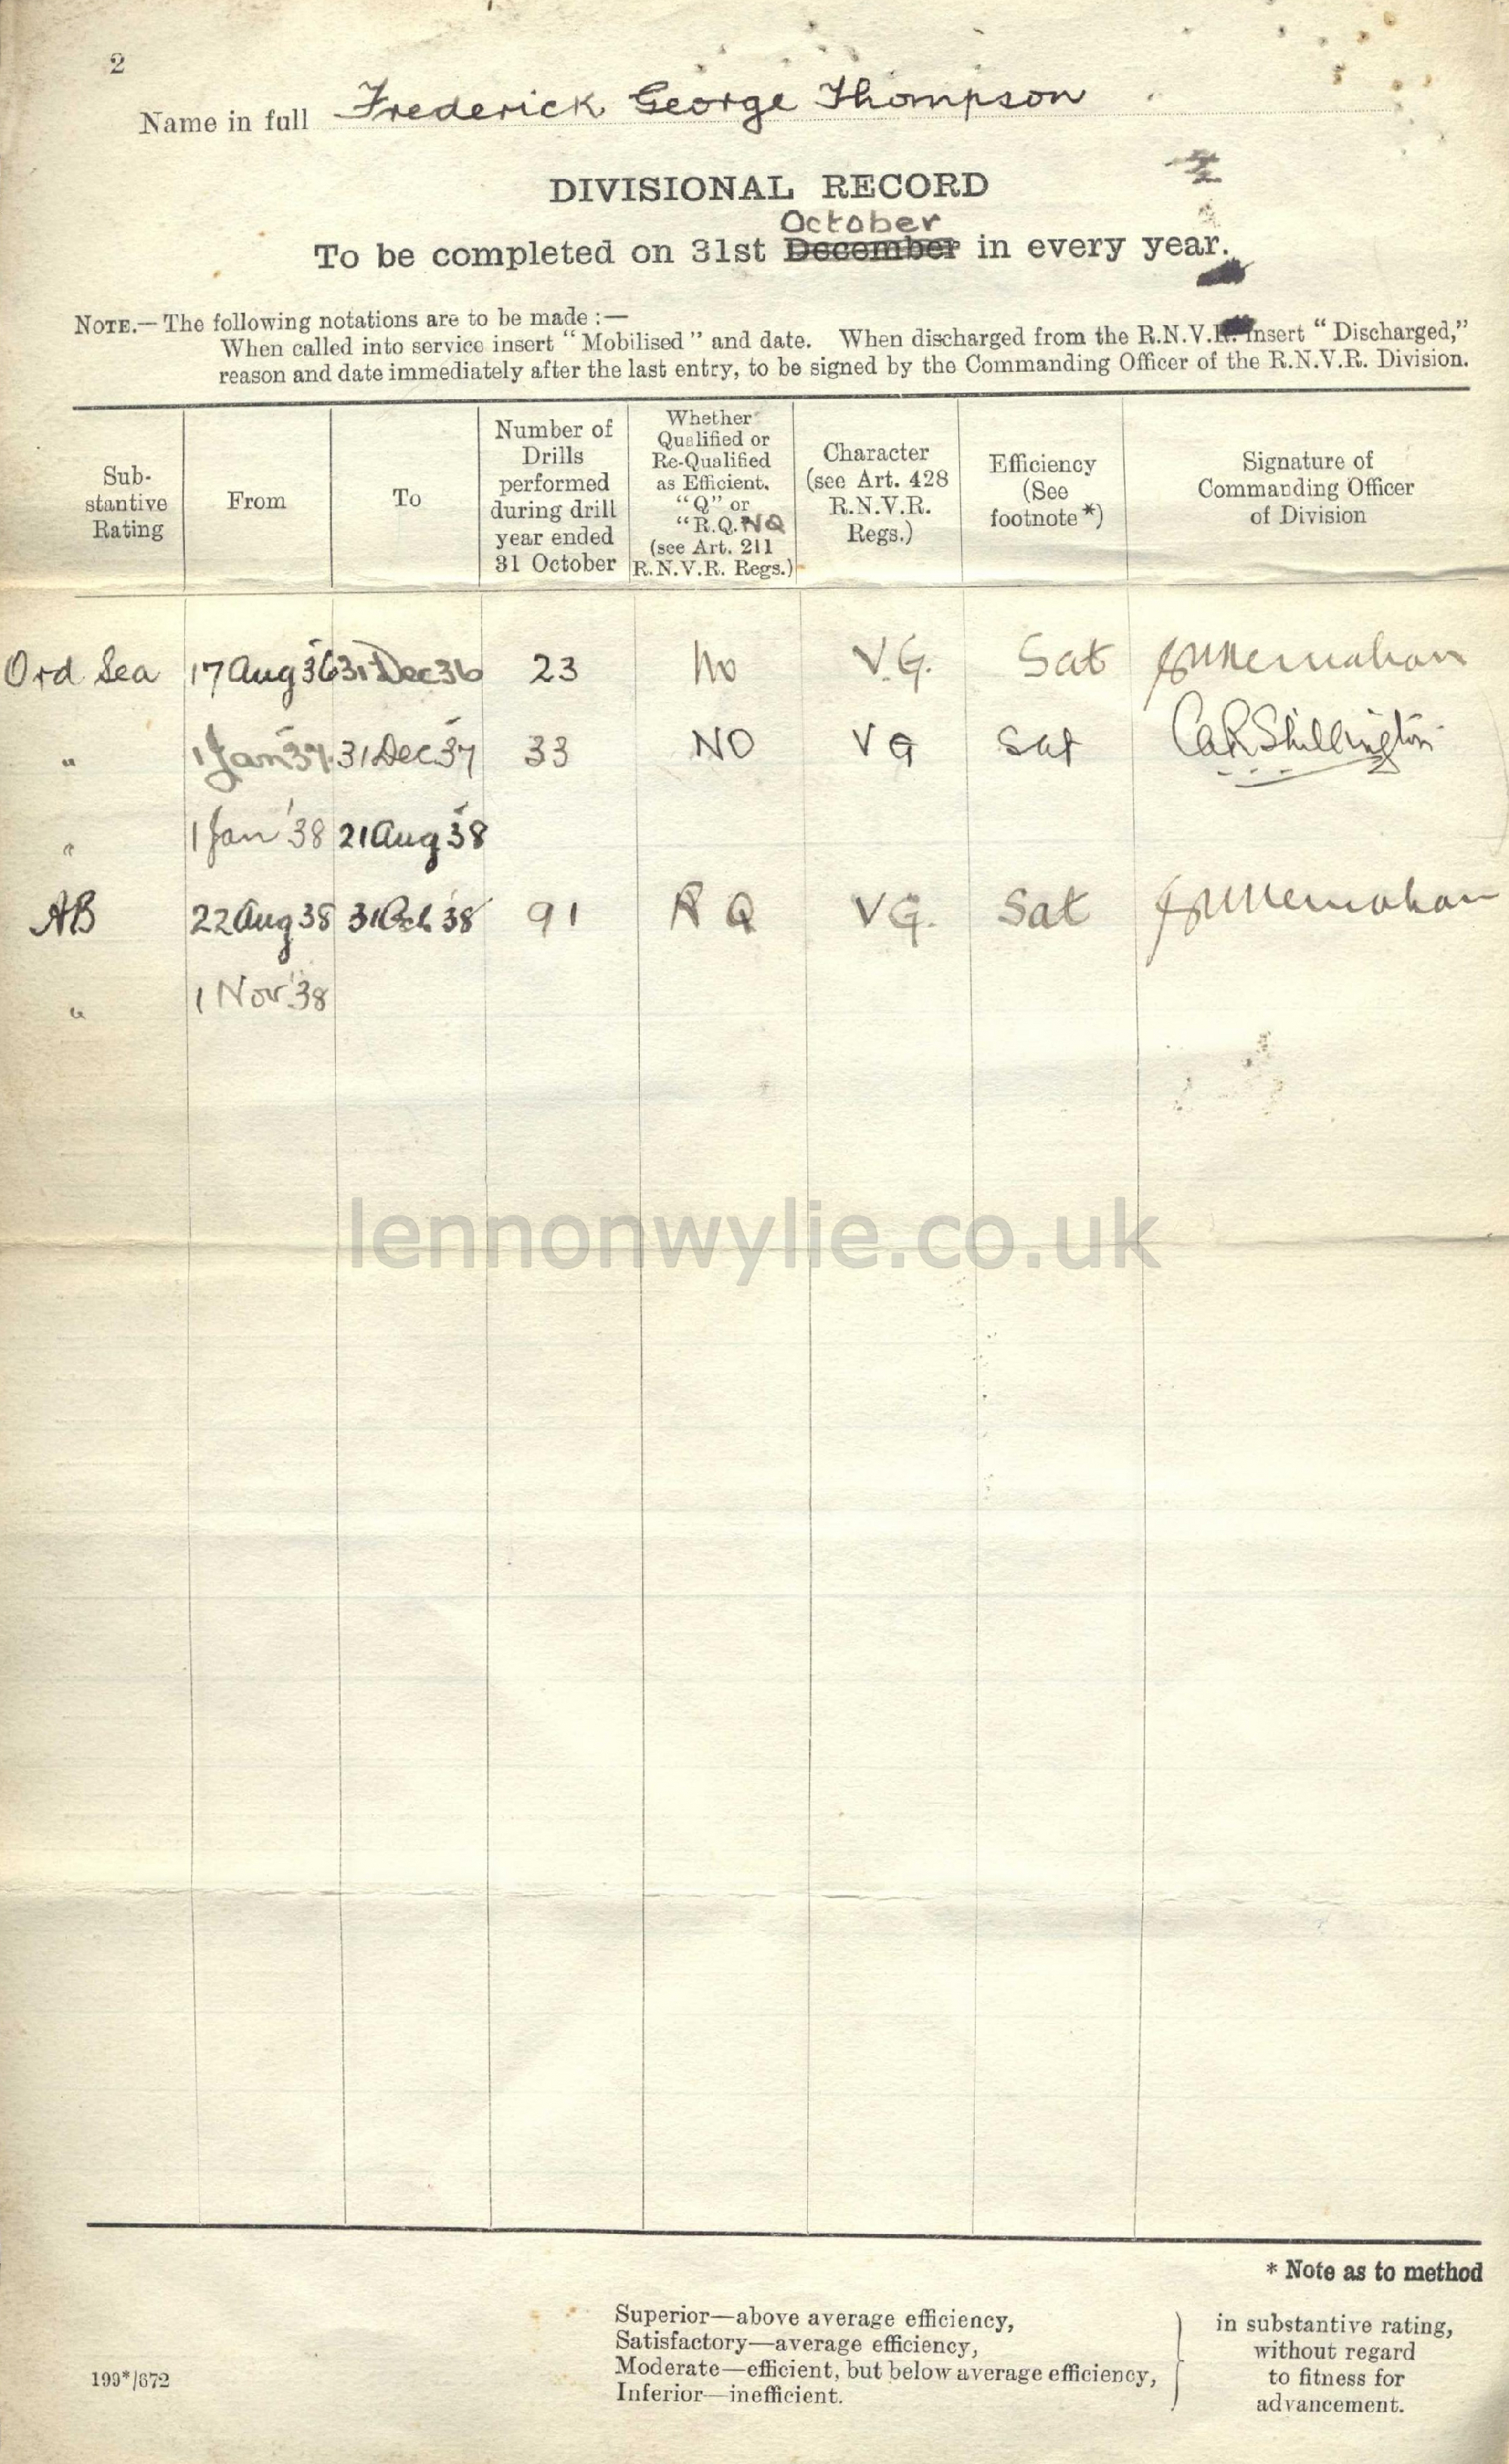 2
Name in full Frederick George Thompson
DIVISIONAL RECORD
October
To be completed on 31st December in every year.
NOTE.—The following notations are to be made :—
When called into service insert “Mobilised” and date. When discharged from the R.N.V.R. insert “Discharged,”
reason and date immediately after the last entry, to be signed by the Commanding Officer of the R.N.V.R. Division.
Sub-
stantive
Rating
From
To
Number of
Drills
performed
during drill
year ended
31 October
Whether
Qualified or
Re-Qualified
as Efficient.
“Q” or
“R.Q. NQ
(see Art. 211
R.N.V.R. Regs.)
Character
(see Art. 428
R.N.V.R.
Regs.)
Efficiency
(See
footnote*)
Signature of
Commanding Officer
of Division
Ord Sea 17 Aug 36 31 Dec 36 23 No V.G. Sat
" 1 Jan 37 31 Dec 37 33 NO VG Sat Shillington
" 1 Jan '38 21 Aug 38
AB 22 Aug 38 31 Oct 38 91 RQ VG. Sat
" 1 Nov 38
lennonwylie.co.uk
* Note as to method
Superior—above average efficiency,
Satisfactory—average efficiency,
Moderate—efficient, but below average efficiency,
Inferior—inefficient.
in substantive rating,
without regard
to fitness for
advancement.
199*/672